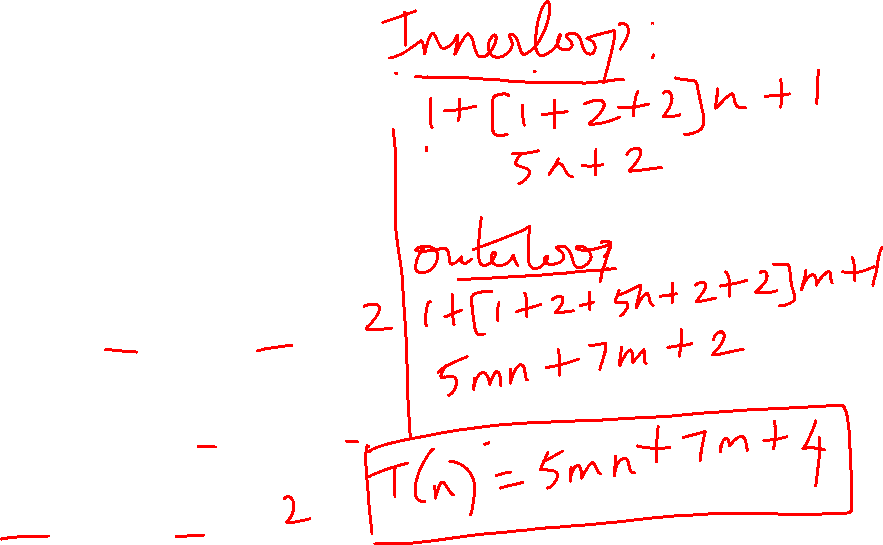 Innerloop:
1+[1+2+2]n+1
5n+2
outerloop
2 1+[1+2+5n+2+2]m+1
5mn+7m+2
T(n)=5mn+7m+4
2